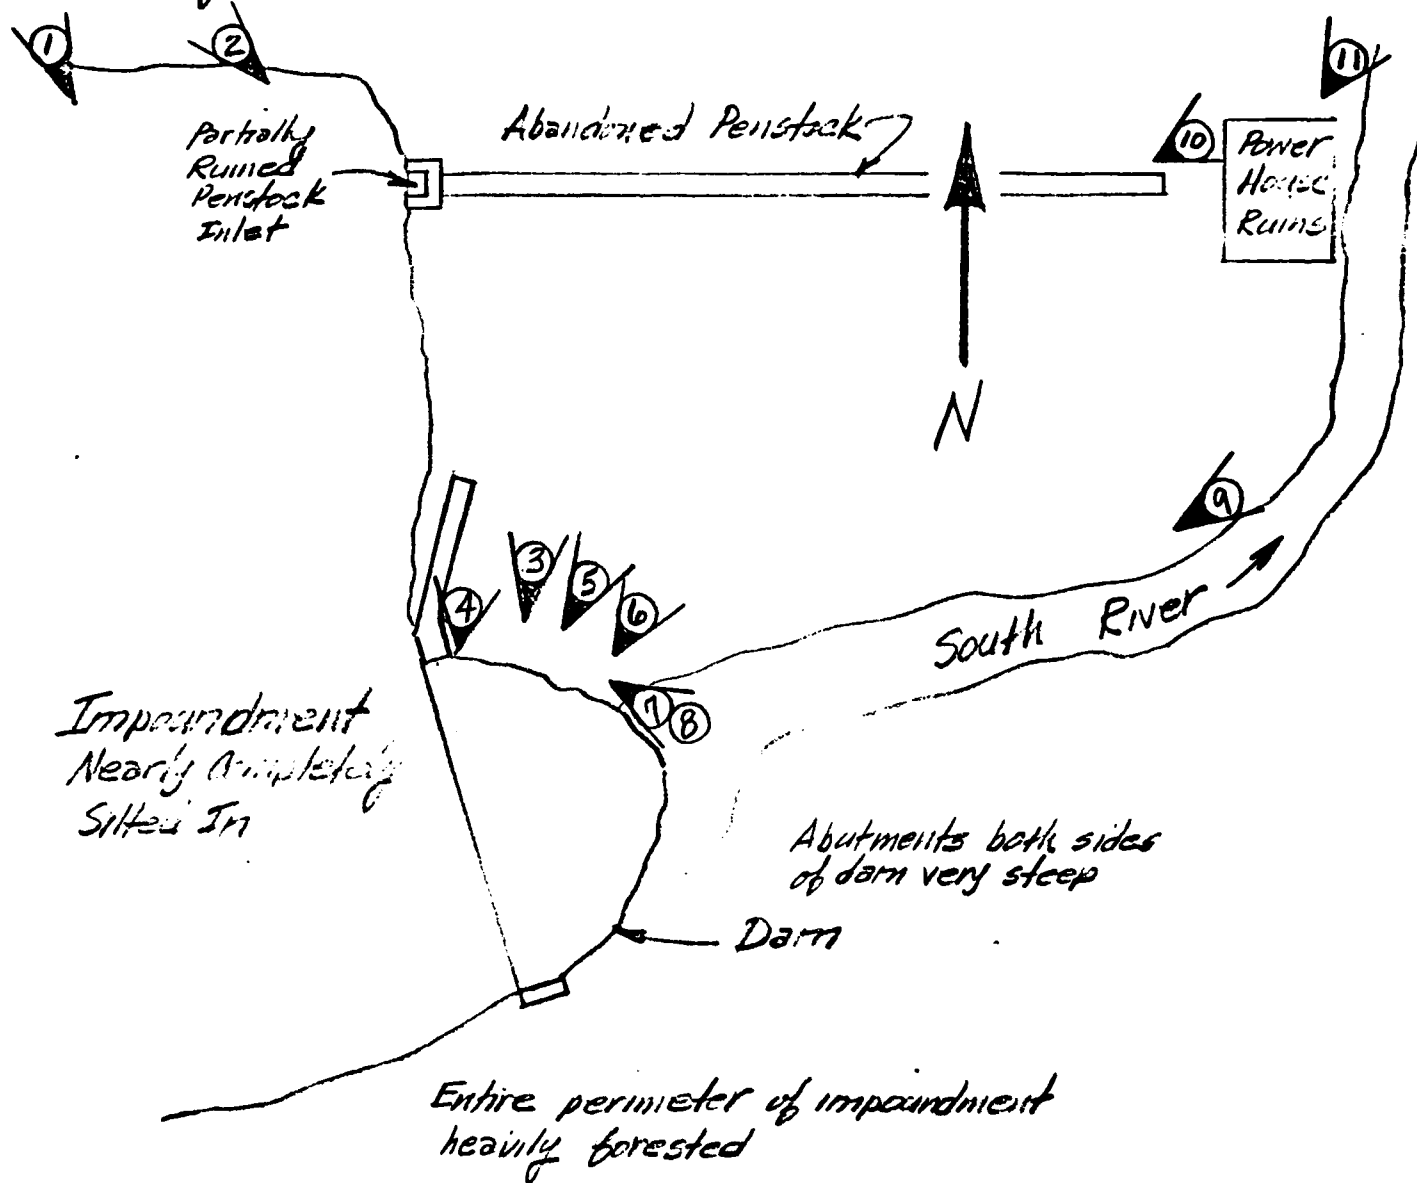 1
2
11
Partially
Ruined
Penstock
Inlet
Abandoned Penstock
10
Power
House
Ruins
N
9
3
5
4
6
South River
7
8
Impoundment
Nearly Completely
Silted In
Abutments both sides
of dam very steep
Dam
Entire perimeter of impoundment
heavily forested